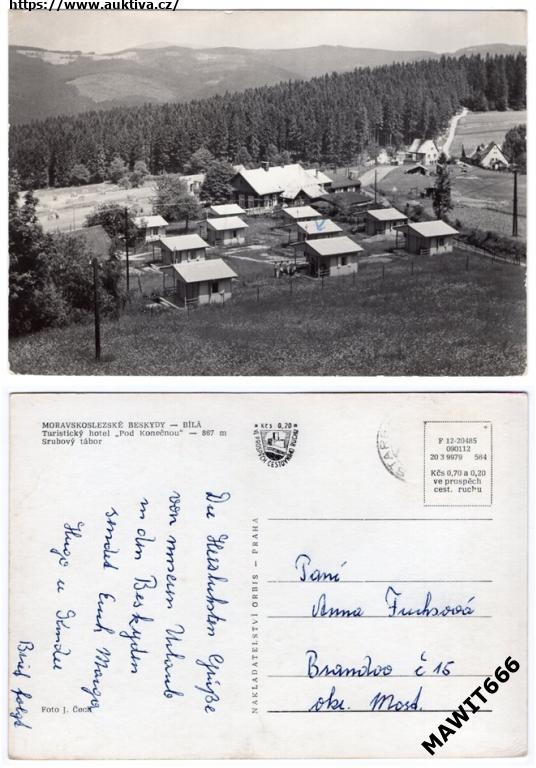 https://www.auktiva.cz/
MORAVSKOSLEZSKÉ BESKYDY — BÍLÁ
Turistický hotel „Pod Konečnou" — 867 m
Srubový tábor
Kčs 0,20
VE PROSPĚCH CESTOVNÍHO RUCHU
F 12-20485
090112
20 3 9979 564
Kčs 0,70 a 0,20
ve prospěch
cest. ruchu
Die Herzlichsten Grüße
von unserem Urlaub
in den Beskyden
sendet Euch Manga
Hugo u
Brief folgt
NAKLADATELSTVÍ ORBIS — PRAHA
Paní
Anna Fuchsová
Brandov č 15
okr. Most.
Foto J. Čech
MAWIT666